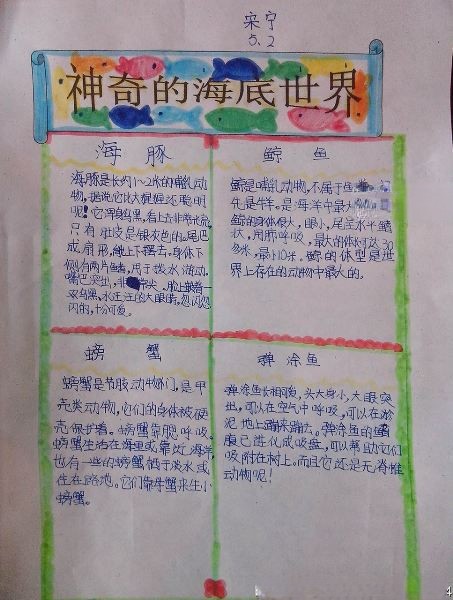 宋宁
5.2
神奇的海底世界
海豚
海豚是长约1~2米的哺乳动
物,据说它比大猩猩还聪明
呢!它浑身乌黑,看上去非常光滑,
只有肚皮是银灰色的。尾巴
成扇形,能上下摆去,身体下
侧有两片鳍,用于拨水游动。
嘴巴突出,非常尖。脸上嵌着一
双乌黑、水汪汪的大眼睛,忽闪忽
闪的,十分可爱。
鲸鱼
鲸是哺乳动物,不属于鱼
牛是牛羊。是海洋中最大
鲸的身体很大,眼小,尾呈水平鳍
状,用肺呼吸,最大的体长可达30
多米,最小10米。鲸的体型是世
界上存在的动物中最大的。
螃蟹
螃蟹是节肢动物门,是甲
壳类动物,它们的身体被硬
壳保护着。螃蟹靠腮呼吸。
螃蟹生活在海里或靠近海洋
也有一些的螃蟹栖于淡水或
住在路地。它们靠母蟹来生小
螃蟹。
弹涂鱼
弹涂鱼长相可爱,头大身小,大眼突
出,可以在空气中呼吸,可以在淤
泥地上蹦来蹦去。弹涂鱼的鳍
腹已进化成吸盘,可以帮助它们
吸附在树上。而且它还是无脊椎
动物呢!
4